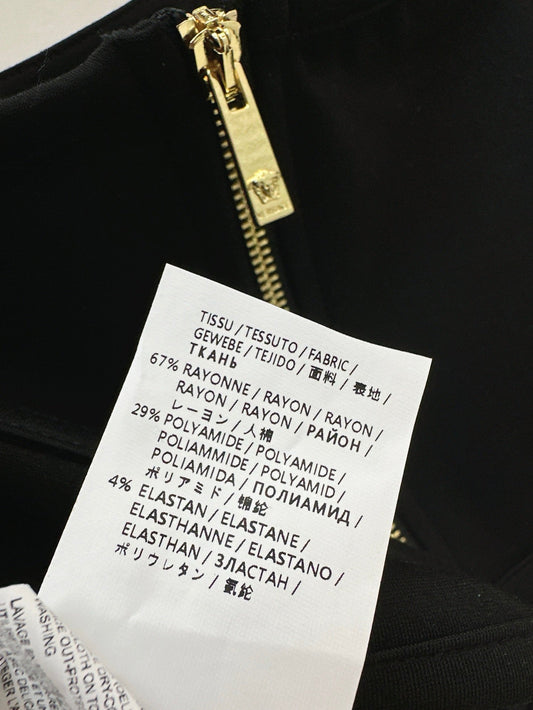 TISSU / TESSUTO / FABRIC /
GEWEBE / TEJIDO / 面料 / 表地 /
ТКАНЬ
67% RAYONNE / RAYON / RAYON /
RAYON / RAYON / РАЙОН /
レーヨン / 人棉
29% POLYAMIDE / POLYAMIDE /
POLIAMMIDE / POLYAMID /
POLIAMIDA / ПОЛИАМИД /
ポリアミド / 锦纶
4% ELASTAN / ELASTANE /
ELASTHANNE / ELASTANO /
ELASTHAN / ЗЛАСТАН /
ポリウレタン / 氨纶
WASHING
LAVAGE